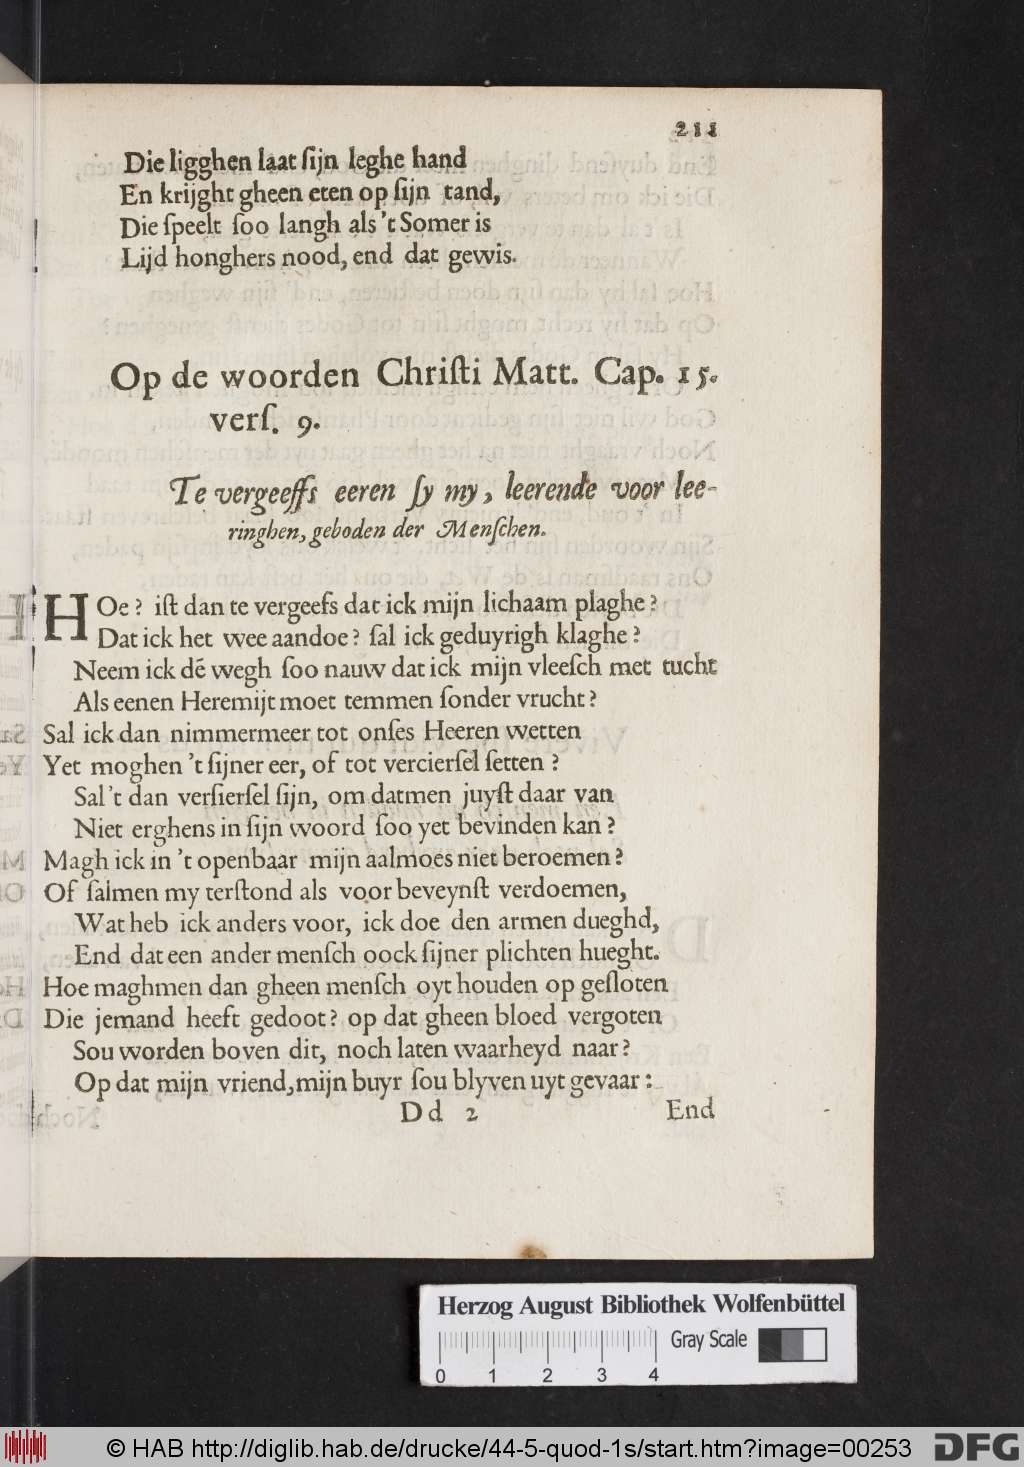 211
Die ligghen laat ſijn leghe hand
En krijght gheen eten op ſijn tand,
Die ſpeelt ſoo langh als 't Somer is
Lijd honghers nood, end dat gewis.
Op de woorden Chriſti Matt. Cap. 15.
verſ. 9.
Te vergeeffs eeren ſy my, leerende voor lee-
ringhen, geboden der Menſchen.
HOe? iſt dan te vergeefs dat ick mijn lichaam plaghe?
Dat ick het wee aandoe? ſal ick geduyrigh klaghe?
Neem ick dē wegh ſoo nauw dat ick mijn vleeſch met tucht
Als eenen Heremijt moet temmen ſonder vrucht?
Sal ick dan nimmermeer tot onſes Heeren wetten
Yet moghen 't ſijner eer, of tot vercierſel ſetten?
Sal 't dan verſierſel ſijn, om datmen juyſt daar van
Niet erghens in ſijn woord ſoo yet bevinden kan?
Magh ick in 't openbaar mijn aalmoes niet beroemen?
Of ſalmen my terſtond als voor beveynſt verdoemen,
Wat heb ick anders voor, ick doe den armen dueghd,
End dat een ander menſch oock ſijner plichten hueght.
Hoe maghmen dan gheen menſch oyt houden op geſloten
Die jemand heeft gedoot? op dat gheen bloed vergoten
Sou worden boven dit, noch laten waarheyd naar?
Op dat mijn vriend, mijn buyr ſou blyven uyt gevaar:
Dd 2 End
Herzog August Bibliothek Wolfenbüttel
Gray Scale
0 1 2 3 4
© HAB http://diglib.hab.de/drucke/44-5-quod-1s/start.htm?image=00253 DFG